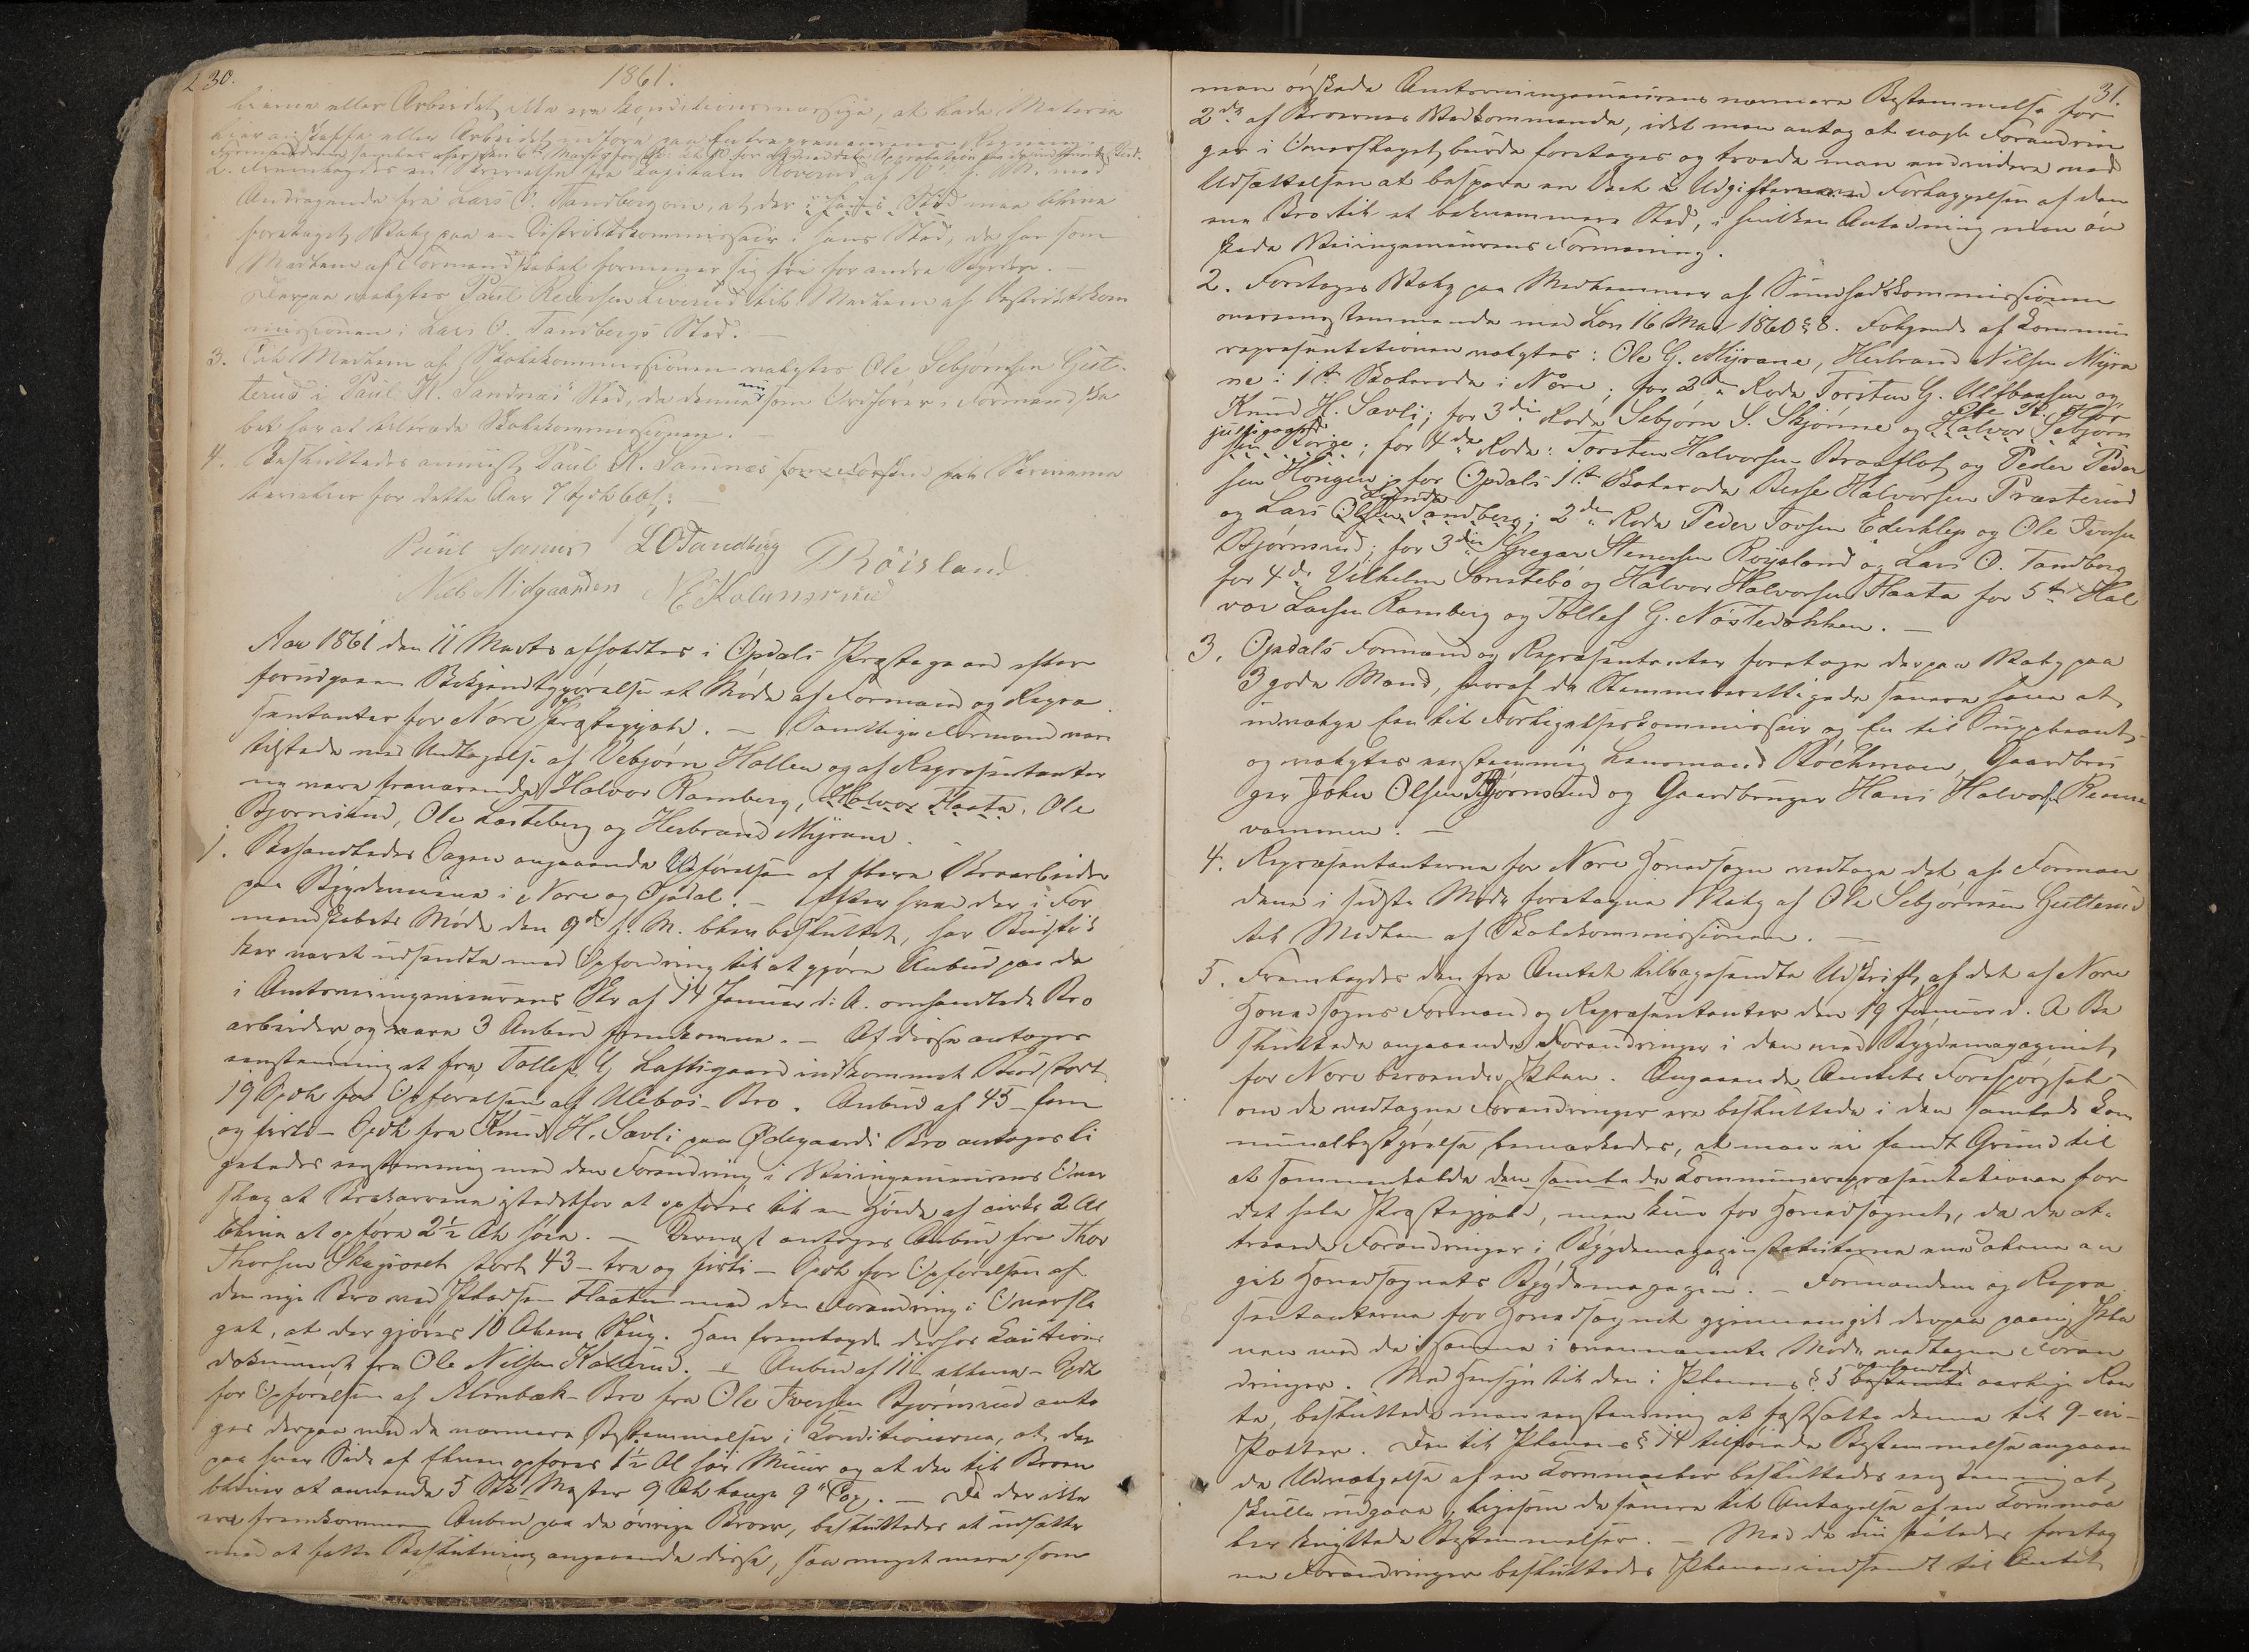 230.
1861.
lierne eller Arbeidet ikke ere konditionsmæssige, at lade Materia
lier anskaffe eller Arbeidet udføre paa Entrepreneurens Regning.
2. Fremlagdes en Skrivelse fra Kapitain Roverud af 10 f. M. med
Andragende fra Lars O. Tandberg om, at der i hans Sted maa blive
foretaget Valg paa en Distriktskommissair i hans Sted, da han som
Medlem af Formandskabet formener sig fri for andre Byrder. –
Derpaa valgtes Paul Reiersen Liverud til Medlem af Distriktskom
missionen i Lars O. Tandbergs Sted. –
3. Til Medlem af Skolekommissionen valgtes Ole Sebjørnsen Gut-
terud i Paul K. Sandnæs Sted, da denne nu som Ordfører i Formandska
bet har at tiltræde Skolekommissionen. –
4. Besluttedes anviist Paul K. Sandnæs som Forskud paa Skrivema
terialier for dette Aar 7 Spdl
Paul Sannes LOTandberg TRöisland
Niels Midgaarden NEKolunsrud
Aar 1861 den 11 Marts afholdtes i Opdals Præstegaard efter
forudgaaen Bekjendtgjørelse et Møde af Formænd og Repræ
sentanter for Nore Præstegjæld. – Samtlige Formænd vare
tilstede med Undtagelse af Vebjørn Hallen og af Repræsentanter
ne vare fraværende Halvor Ramberg, Halvor Flaata, Ole
Bjørnsrud, Ole Lasteberg og Herbrand Myrane. –
1. Behandledes Sagen angaaende Udførelsen af flere Broarbeider
paa Bygdeveiene i Nore og Opdal. – Efter hvad der i For
mandskabets Møde den 9de f. M. blev besluttet, har Budstik
ker været udsendte med Opfordring til at gjøre Anbud paa de
i Amtsveiingenieurens Skr af 14 Januar d: A. omhandlede Bro
arbeider og vare 3 Anbud fremkomne. – Af disse antoges
eenstemmig et fra Tollef Laftsgaard indkommet Bud stort
19 Spdl for Opførelsen af Uleboi-Bro. Anbud af 45 – fem
og firti – Spdl fra Knud H. Sævli paa Ødegaards Bro antoges li
geledes eenstemmig med den Forandring i Veiingenieurens Over
slag at Brokarrene istedetfor at opføres til en Høide af cirka 2 Al
bliver at opføre 2½ Al høie. – Dernæst antoges Anbud fra Thor
Thorsen Skagioset stort 43 – tre og firti – Spdl for Opførelsen af
den nye Bro ved Pladsen Flaaten med den Forandring i Oversla
get, at der gjøres 10 Alens Stug. Han fremlagde derhos Kautions
dokument fra Ole Nilsen Kollerud. – Anbud af 11 – elleve – Spdl
for Opførelsen af Almbæk-Bro fra Ole Iversen Bjørnsrud anto
ges derpaa med de nærmere Bestemmelser i Konditionerne, at der
paa hver Side af Elven opføres 1½ Al høi Muur og at der til Broen
bliver at anvende 5 Stk Master 9 Al lange 9" Top. – Da der ikke
ere fremkomne Anbud paa de øvrige Broer, besluttedes at udsætte
med at fatte Beslutning angaaende disse, saa meget mere som
31.
man ønskede Amtsveiingenieurens nærmere Bestemmelse for
2de af Broernes Vedkommende, idet man antog at nogle Forandrin
ger i Overslaget burde foretages og troede man endvidere ved
Udsættelsen at bespare en Deel i Udgifterne ved Forlæggelsen af den
ene Bro til et bekvemmere Sted, i hvilken Anledning man øn
skede Veiingenieurens Formening.
2. Foretoges Valg paa Medlemmer af Sundhedskommissionen
overeensstemmende med Lov 16 Mai 1860 § 8. Følgende af Kommune
repræsentationen valgtes: Ole G. Myrane, Herbrand Nilsen Myra
ne i 1ste Skolerode i Nore; for 2den Rode Torsten G. Ulfbaasen og
Knud H. Sævli; for 3die Rode Sebjørn S. Skjønne og Halvor Sebjørn
sen Borge; for 4de Rode: Torsten Halvorsen Braaflot og Peder Peder
sen Hongen; for Opdals 1ste Skolerode Besse Halvorsen Præsterud
og Lars Olsen Tandberg; 2den Rode Peder Tovsen Ederklep og Ole Iversen
Bjørnsrud; for 3die Gregar Stenersen Roysland og Lars O. Tandberg
for 4de Vilhelm Sonstebø og Halvor Halvorsen Flaata for 5te Hal
vor Larsen Ramberg og Tollef G. Nøstedokken. –
3. Opdals Formænd og Repræsentanter foretoge derpaa Valg paa
3 gode Mænd, hvoraf de Stemmeberettigede senere have at
udvælge Een til Forligelseskommissair og En til Suppleant,
og valgtes eenstemmig Lensmand Bøchman, Gaardbru
ger John Olsen Bjørnsrud og Gaardbruger Hans Halvorsen Renne
vammen. –
4. Repræsentanterne for Nore Hovedsogn vedtoge det af Forman
dene i sidste Møde foretagne Valg af Ole Sebjørnsen Gutterud
til Medlem af Skolekommissionen. –
5. Fremlagdes den fra Amtet tilbagesendte Udskrift af det af Nore
Hovedsogns Formænd og Repræsentanter den 19 Januar d. A Be
sluttede angaaende Forandringer i den med Bygdemagazinet
for Nore værende Plan. Angaaende Amtets Forespørgsel
om de vedtagne Forandringer ere besluttede i den samlede Kom
munalbestyrelse, bemærkedes, at man ei fandt Grund til
at sammenkalde den samlede Kommunerepræsentationen for
det hele Præstegjæld, men kun for Hovedsognet, da de at-
traaede Forandringer i Bygdemagazinstatuterne ene alene an
gik Hovedsognets Bygdemagazin. – Formændene og Repræ
sentanterne for Hovedsognet gjennemgik derpaa paany Pla
nen med de i samme i ovennævnte Møde vedtagne Foran
dringer. Med Hensyn til den i Planens § 5 omhandlede aarlige Ren
te, besluttede man eenstemmig at fastsætte denne til 9 – ni –
Potter. Den til Planens § 14 tilføiede Bestemmelse angaaen
de Udvælgelse af en Kornmaaler besluttedes eenstemmig at
skulle udgaae, ligesom de senere til Antagelse af en Kornmaa
ler knyttede Bestemmelser. – Med de nu saaledes foretag
ne Forandringer besluttedes Planen indsendt til Amtet